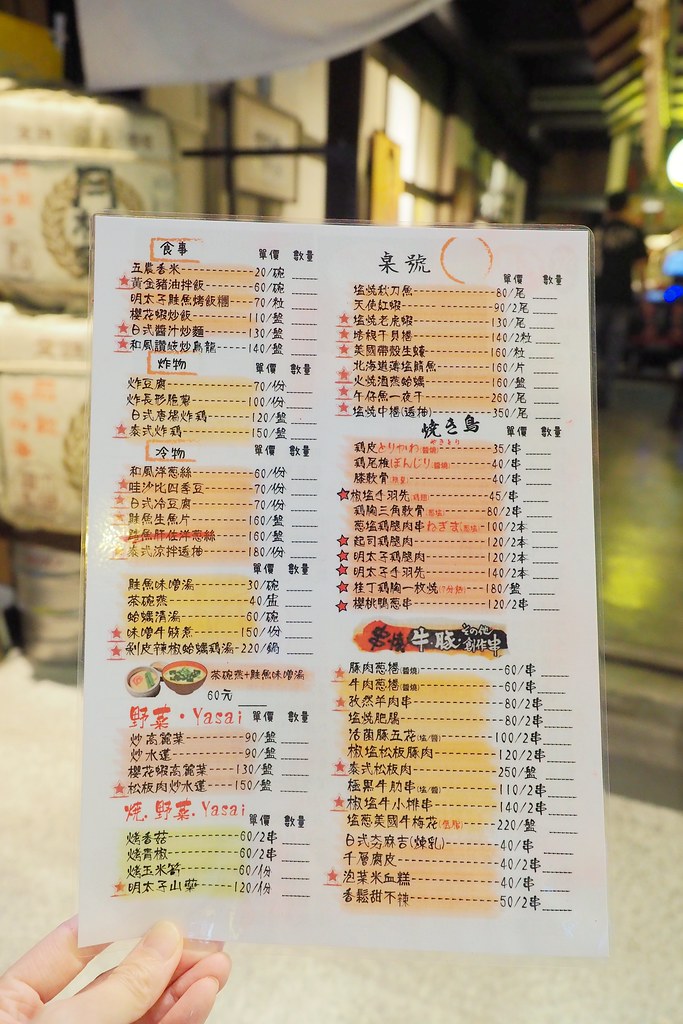 食事 單價 數量
五農香米 20/碗
★黃金豬油拌飯 60/碗
明太子鮭魚烤飯糰 70/粒
櫻花蝦炒飯 110/盤
★日式醬汁炒麵 130/盤
★和風讚岐炒烏龍 140/盤
炸物 單價 數量
炸豆腐 70/份
炸長形脆薯 100/份
日式唐楊炸鷄 120/盤
★泰式炸鷄 150/盤
冷物 單價 數量
和風洋蔥絲 60/份
★哇沙比四季豆 70/份
★日式冷豆腐 70/份
★鮭魚生魚片 160/盤
★鮟鱇魚肝佐洋蔥絲 160/盤
★泰式涼拌透抽 180/份
單價 數量
鮭魚味噌湯 30/碗
茶碗蒸 40/盅
蛤蠣清湯 60/碗
★味噌牛筋煮 150/份
★剝皮辣椒蛤蠣鷄湯 220/鍋
茶碗蒸+鮭魚味噌湯
60元
野菜・Yasai 單價 數量
炒高麗菜 90/盤
炒水蓮 90/盤
櫻花蝦高麗菜 130/盤
★松板肉炒水蓮 150/盤
燒.野菜.Yasai 單價 數量
烤香菇 60/2串
烤青椒 60/2串
烤玉米筍 60/份
★明太子山藥 120/份
桌號
單價 數量
塩燒秋刀魚 80/尾
天使紅蝦 90/2尾
★塩燒老虎蝦 130/尾
★培根干貝捲 140/2粒
★美國帶殼生蠔 160/粒
北海道薄塩鯖魚 160/片
★火燒酒蒸蛤蠣 160/盤
★午仔魚一夜干 260/尾
★塩燒中捲(透抽) 350/尾
焼き鳥 單價 數量
やきとり
鷄皮とりかわ(醬燒) 35/串
鷄尾椎ぼんじり(醬燒) 40/串
膝軟骨 40/串
★椒塩手羽先 45/串
鷄胸三角軟骨 80/2串
蔥塩鷄腿肉串ねぎま 100/2本
★起司鷄腿肉 120/2本
★明太子鷄腿肉 120/2本
★明太子手羽先 140/2本
★桂丁鷄胸一枚燒(7分熟) 180/盤
★櫻桃鴨蔥串 120/2串
串燒 牛.豚.その他創作串
豚肉蔥捲(醬燒) 60/串
牛肉蔥捲(醬燒) 60/串
★孜然羊肉串 80/2串
塩燒肥腸 80/2串
活菌豚五花(塩/醬) 100/2串
椒塩松板豚肉 120/2串
★泰式松板肉 250/盤
極黑牛肋串(塩/醬) 110/2串
★椒塩牛小排串 140/2串
塩蔥美國牛梅花 220/盤
日式夯麻吉(煉乳) 40/串
千層腐皮 40/2串
★泡菜米血糕 40/串
香鬆甜不辣 50/2串